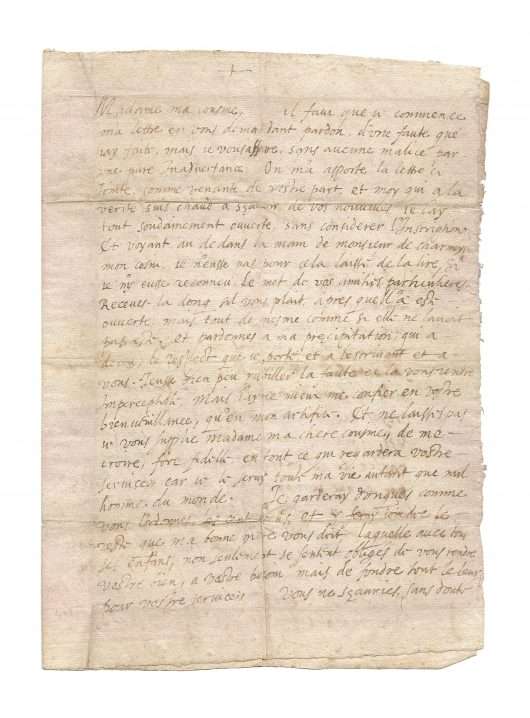 Madame ma cousine, il faut que je commence
ma lettre en vous demandant pardon, d'une faute que
jay faite, mais je vous asseure, sans aucune malice par
une pure inadvertance. On m'a apporté la lettre cy
jointe, comme venante de vostre part, et moy qui a la
verité suis chaud a sçavoir de vos nouvelles je l'ay
tout soudainement ouverte, sans considerer l'inscription
Et voyant au dedans la main de monsieur de
mon je n'eusse pas pour cela laissé de la lire, si
je n'y eusse reconneu, le mot de vos particulieres.
Receves la donq sil vous plait, apres quell'a esté
ouverte, mais tout de mesme comme si elle ne lavait
pas esté, et pardonnes a ma precipitation, qui a
le respect que je porte, et a et a
vous. J'eusse bien peu la faute et la vous rendre
imperceptible, mais j'ayme mieux me confier en vostre
bienveuillance, qu'en mon artifice. Et ne laisses pas
je vous supplie Madame ma chere cousine, de me
croire, fort fidelle en tout ce qui regardera vostre
service, car je le seray toute ma vie autant que nul
homme du monde. Je garderay donques comme
vous et le
reste que ma bonne mere vous doit, laquelle avec tous
ses enfans, non seulement se sentent obliges de vous rendre
vostre bien, a vostre besoin mais de fondre tout le leur
pour vostre service. Vous ne sçauries, sans doute